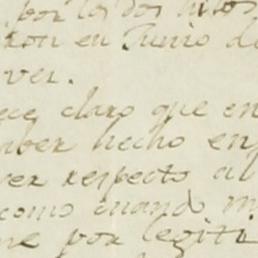 por los dos hilos
ron en Junio de
ver.
ece claro que en
aber hecho en
ver respecto al
como cuando m
me por legiti